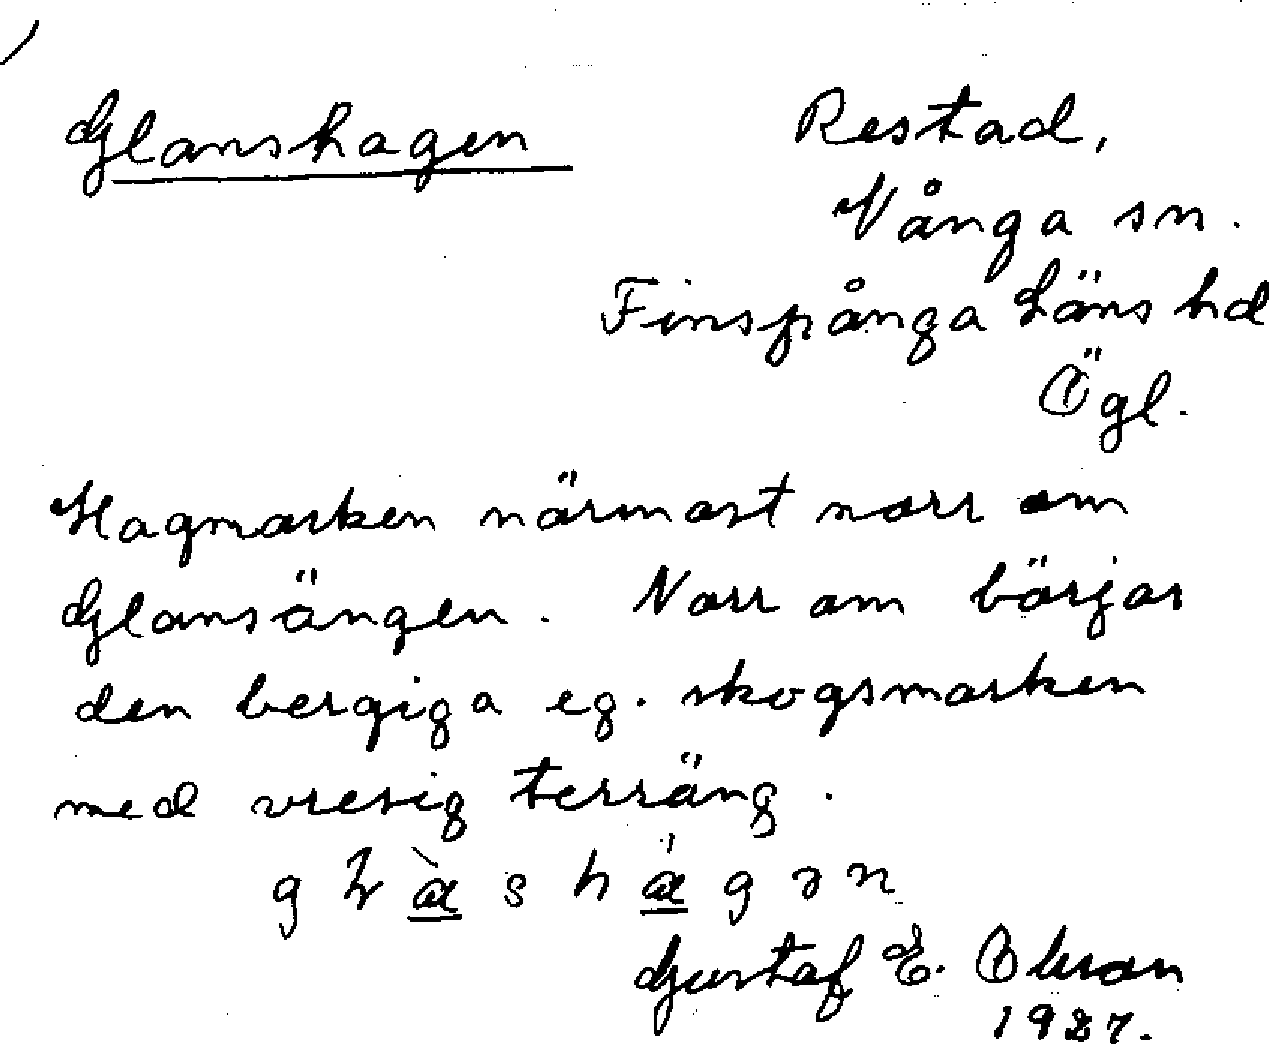 Glanshagen
Restad,
Vånga sn.
Finspånga Läns hd
Ögl.
Hagmarken närmast norr om
Glansängen. Norr om börjar
den bergiga eg. skogsmarken
med vresig terräng.
Gustaf E. Olson
1927.